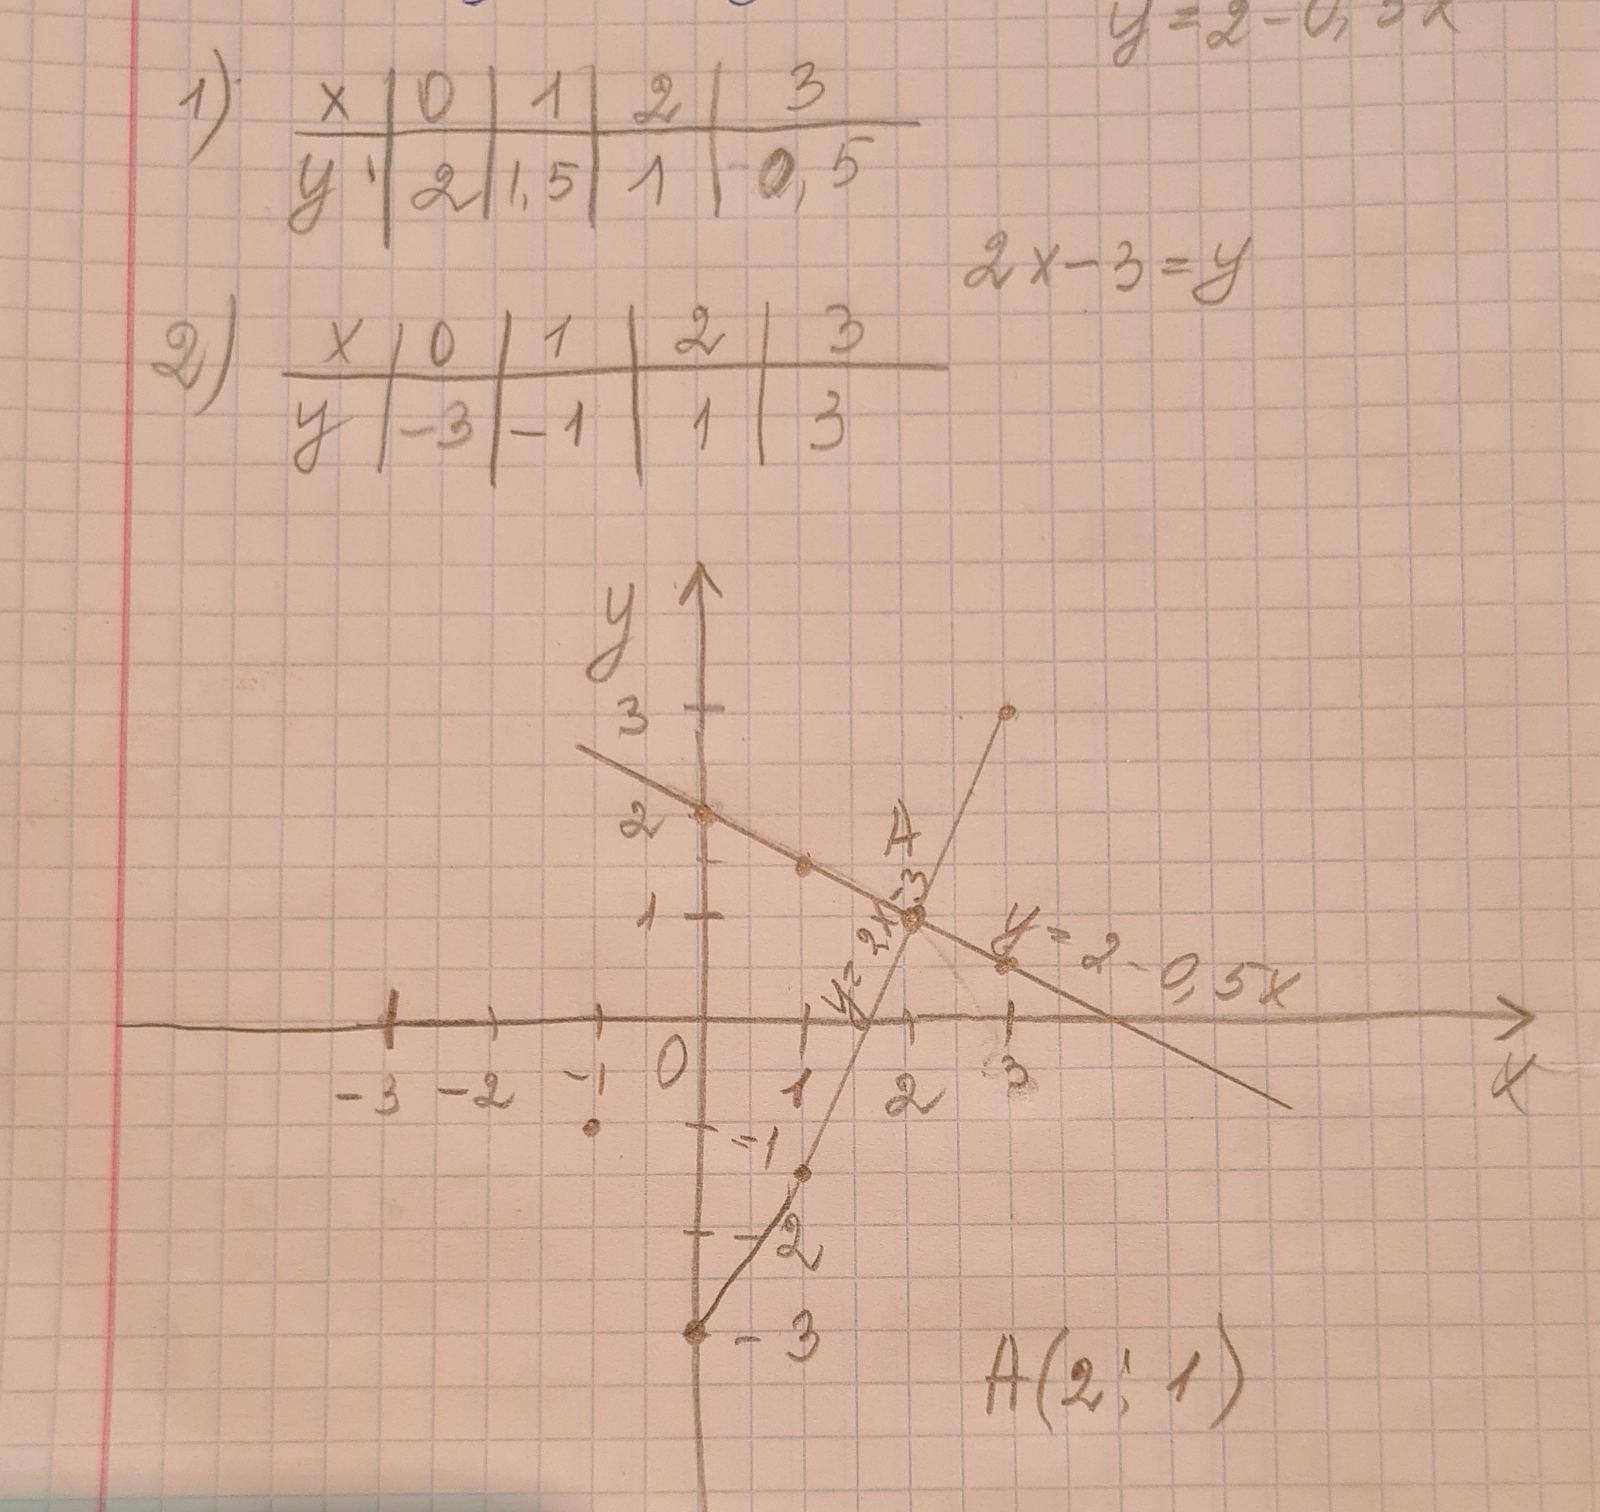 y = 2 - 0,5x
1) x | 0 | 1 | 2 | 3
y | 2 | 1,5 | 1 | 0,5
2x - 3 = y
2) x | 0 | 1 | 2 | 3
y | -3 | -1 | 1 | 3
y
3
2
A
1
y = 2x - 3
y = 2 - 0,5x
-3 -2 -1 0 1 2 3 x
-1
-2
-3
A(2; 1)